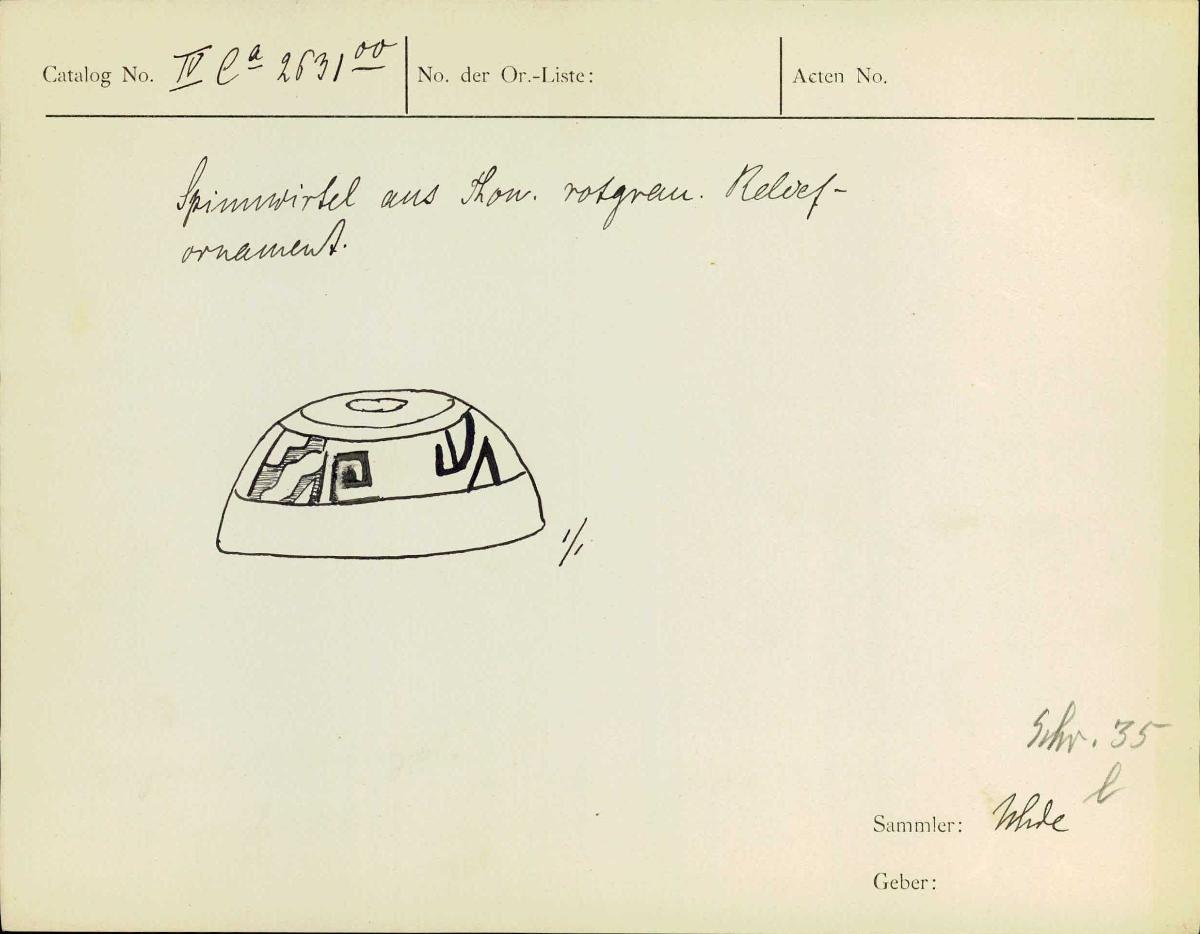 Catalog No. IV Ca 2631 00 No. der Or.-Liste: Acten No.
Spinnwirtel aus Thon. rotgrau. Relief-
ornament.
1/1
Schr. 35
l
Sammler: Uhde
Geber: